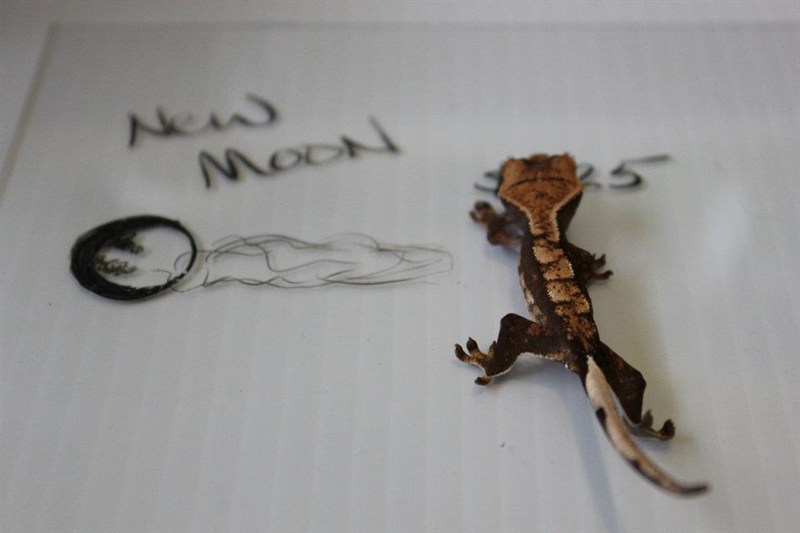 New
Moon
25